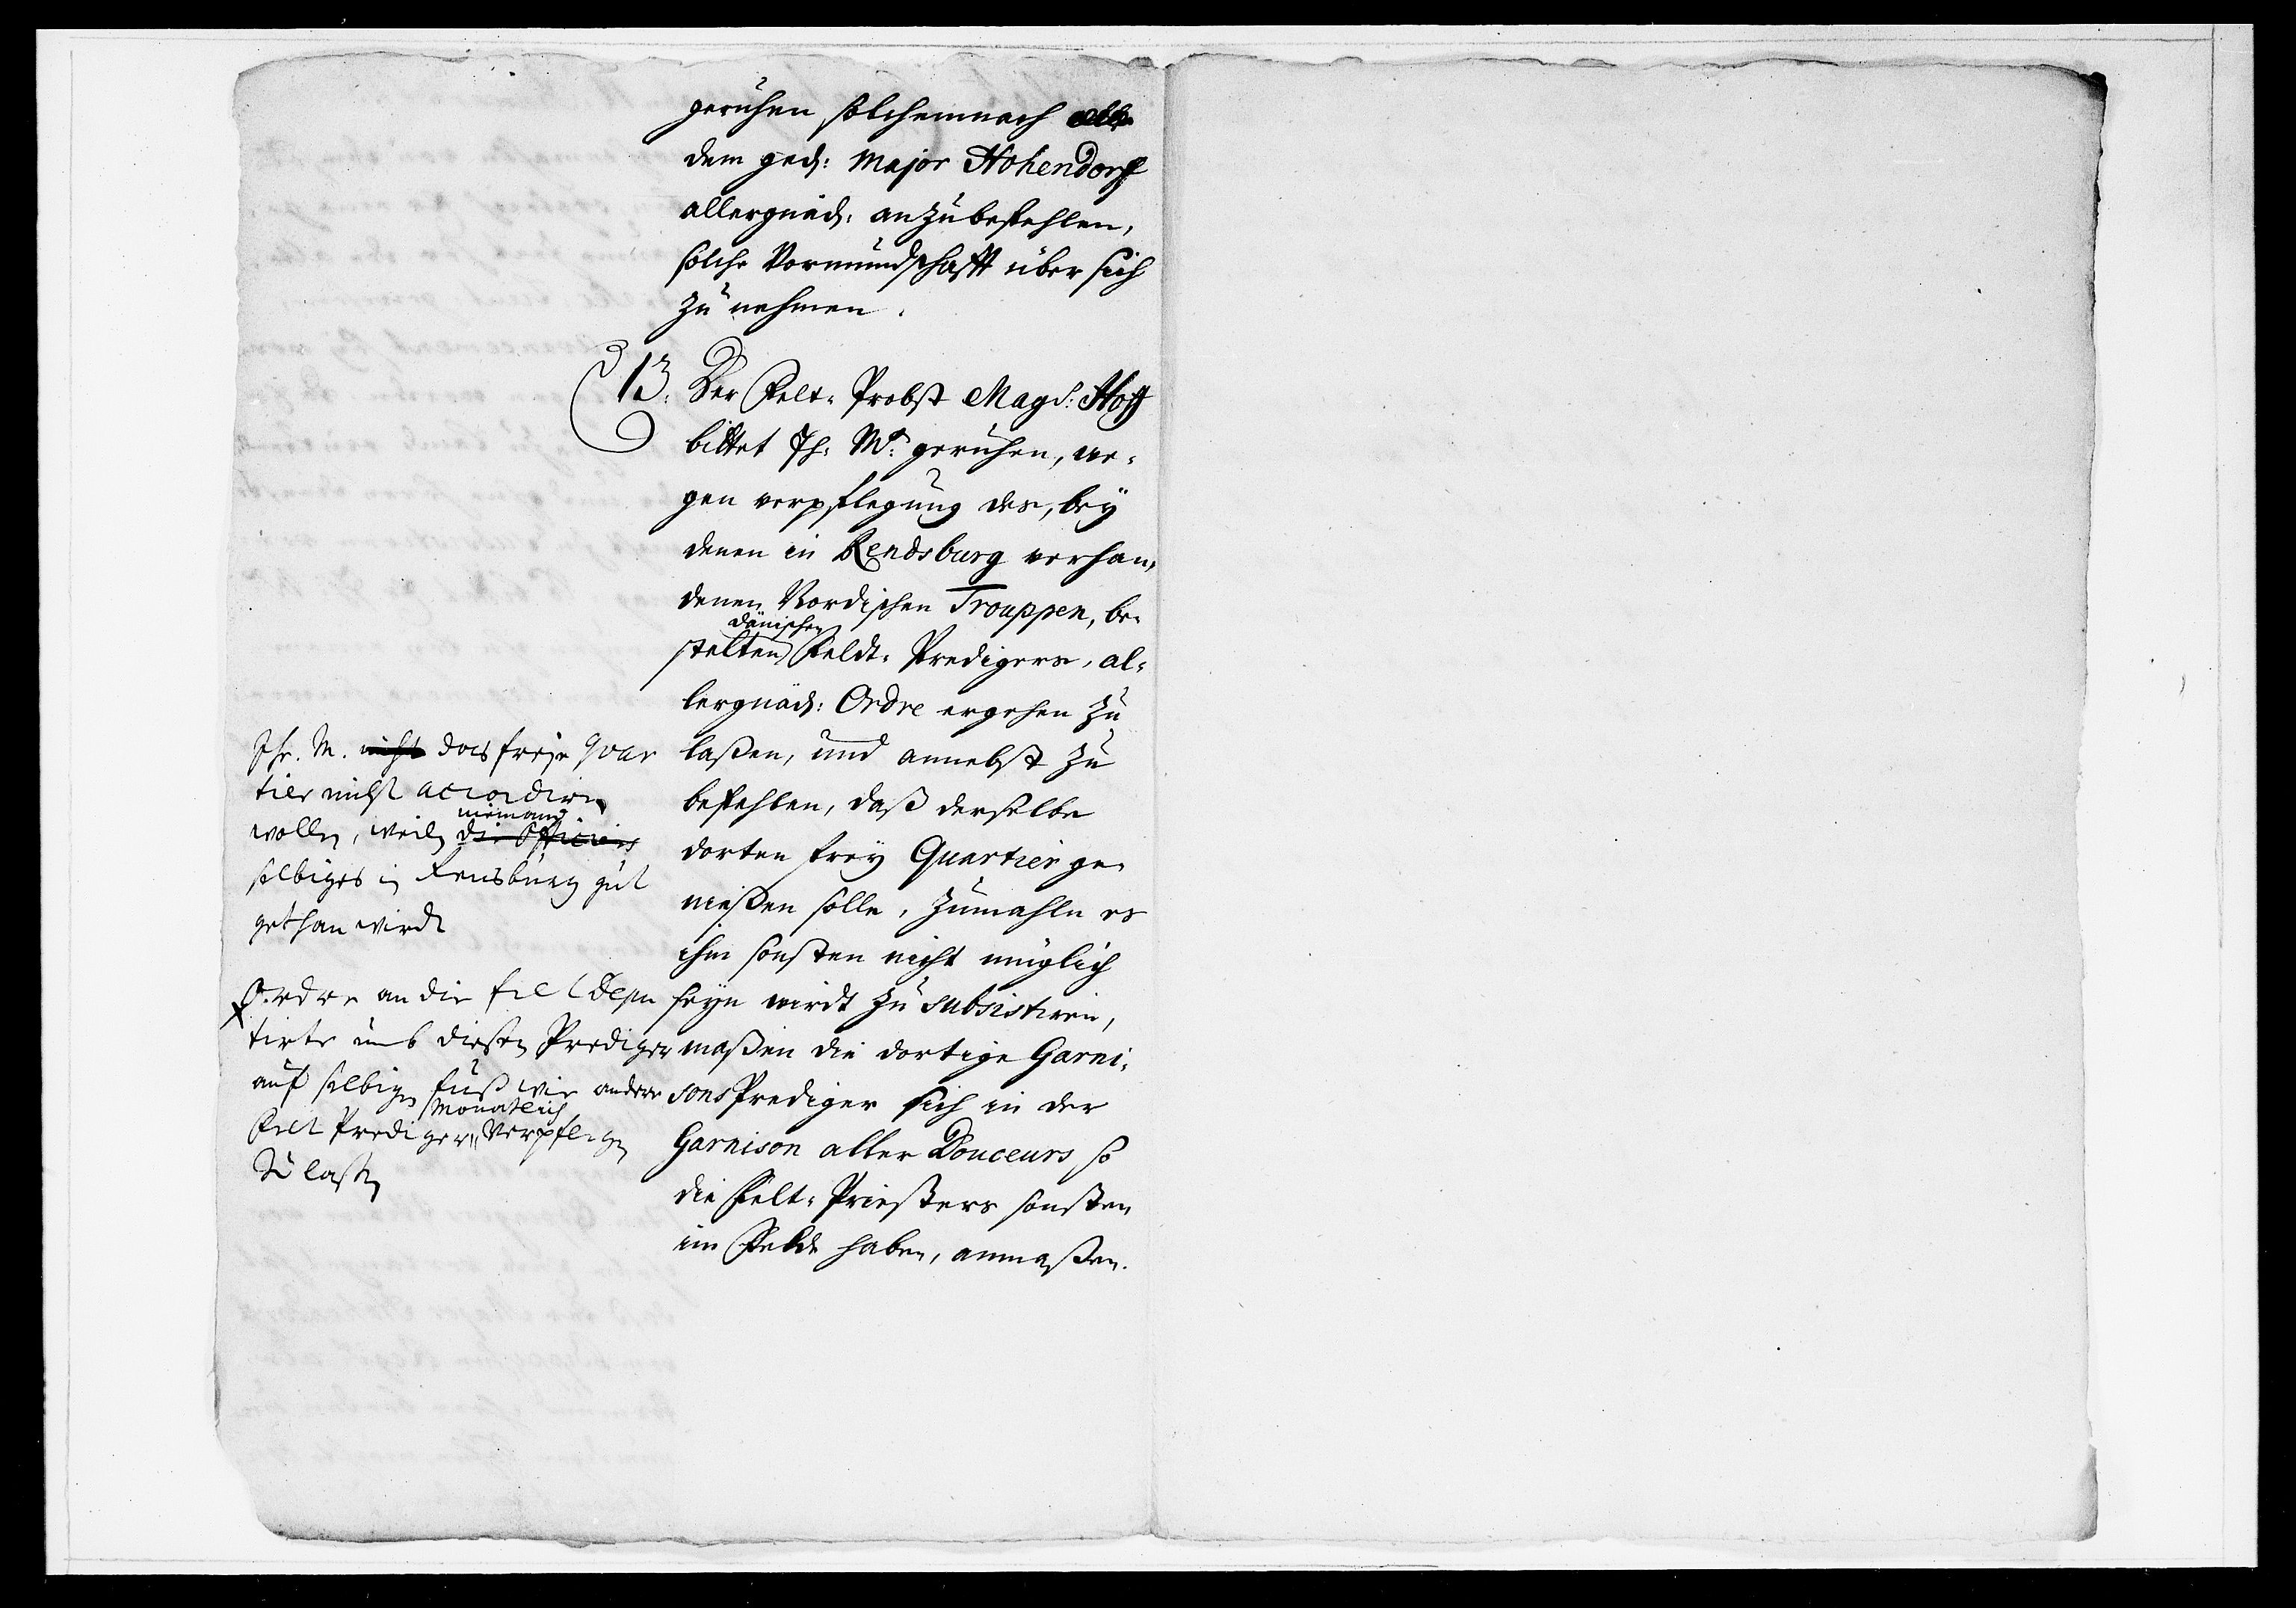 geruhen solchemnach
dem ged: Major Hohendorff
allergnäd: anzubefehlen,
solche Vormundschafft über sich
zu nehmen.
13. Der Felt-Probst Mag: Hoff
bittet Ih: Mt: geruhen, we-
gen verpflegung des, bey
denen in Rendsburg vorhan-
denen Nordischen Trouppen, be-
dänischen
stelten Feldt-Predigers, al-
lergnäd: Ordre ergehen zu
laßen, und annebst zu
befehlen, daß derselbe
dorten frey Quartier ge-
nießen solle, zumahln es
ihm sonsten nicht müglich
seyn wirdt zu subsistiren,
maßen die dortige Garni-
sons Prediger sich in der
Garnison aller Douceurs so
die Felt-Priesters sonsten
im Felde haben, anmaßen.
Ihr. M. nicht das freye Quar
tier nicht accordiren
niemand
wollen, weiln die Officirs
selbiges in Rensburg gut
gethan wirdt
Ordre an die Felt Depu
tirte umb diesen Prediger
auf selbigen fuß wie andere
Monatlich
Felt Prediger Verpflegen
Zu laßen